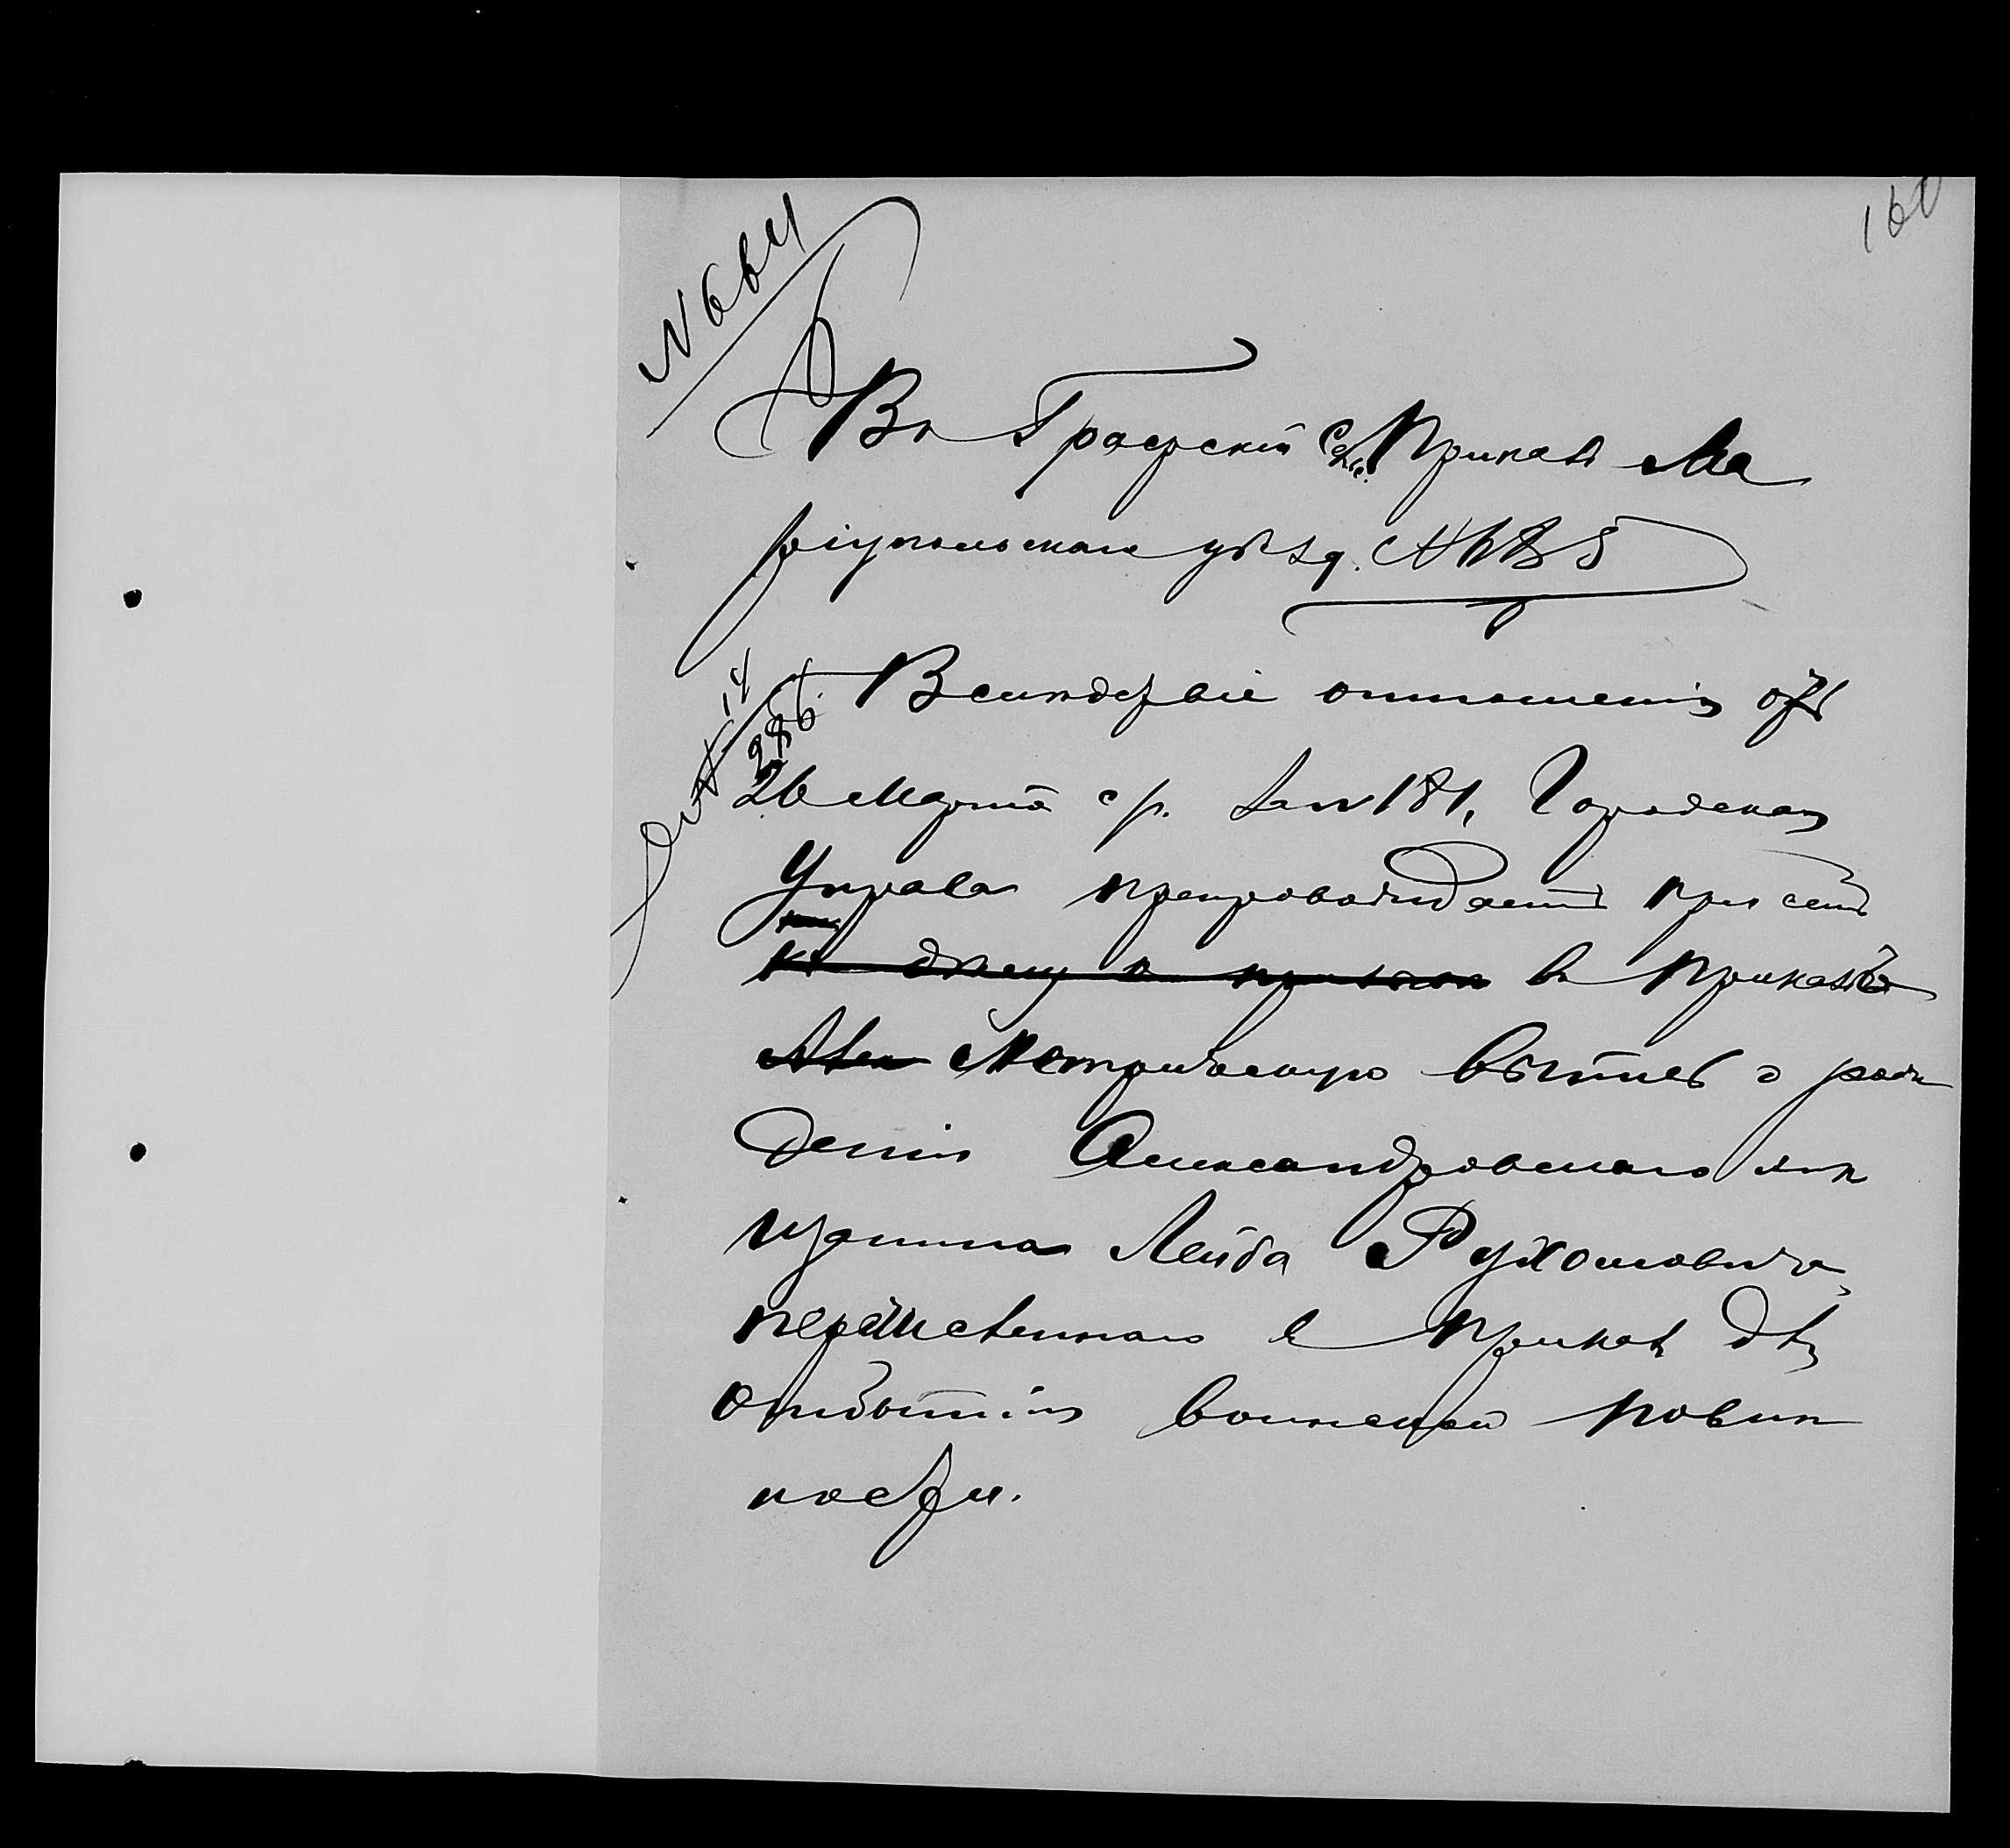 160
Въ Графскій Сельс. Приказъ Ма
ріупольскаго уѣзд.
Вслѣдствіе отношенія отъ
26 Марта с/г. за № 181, Городская
Управа препровождаетъ при семъ
въ Приказъ
Метрическую выпись о рож
деніи Александровскаго мѣ
щанина Лейба Рухомовича,
перечисленнаго въ Приказъ для
отбытія воинской повин
ности.